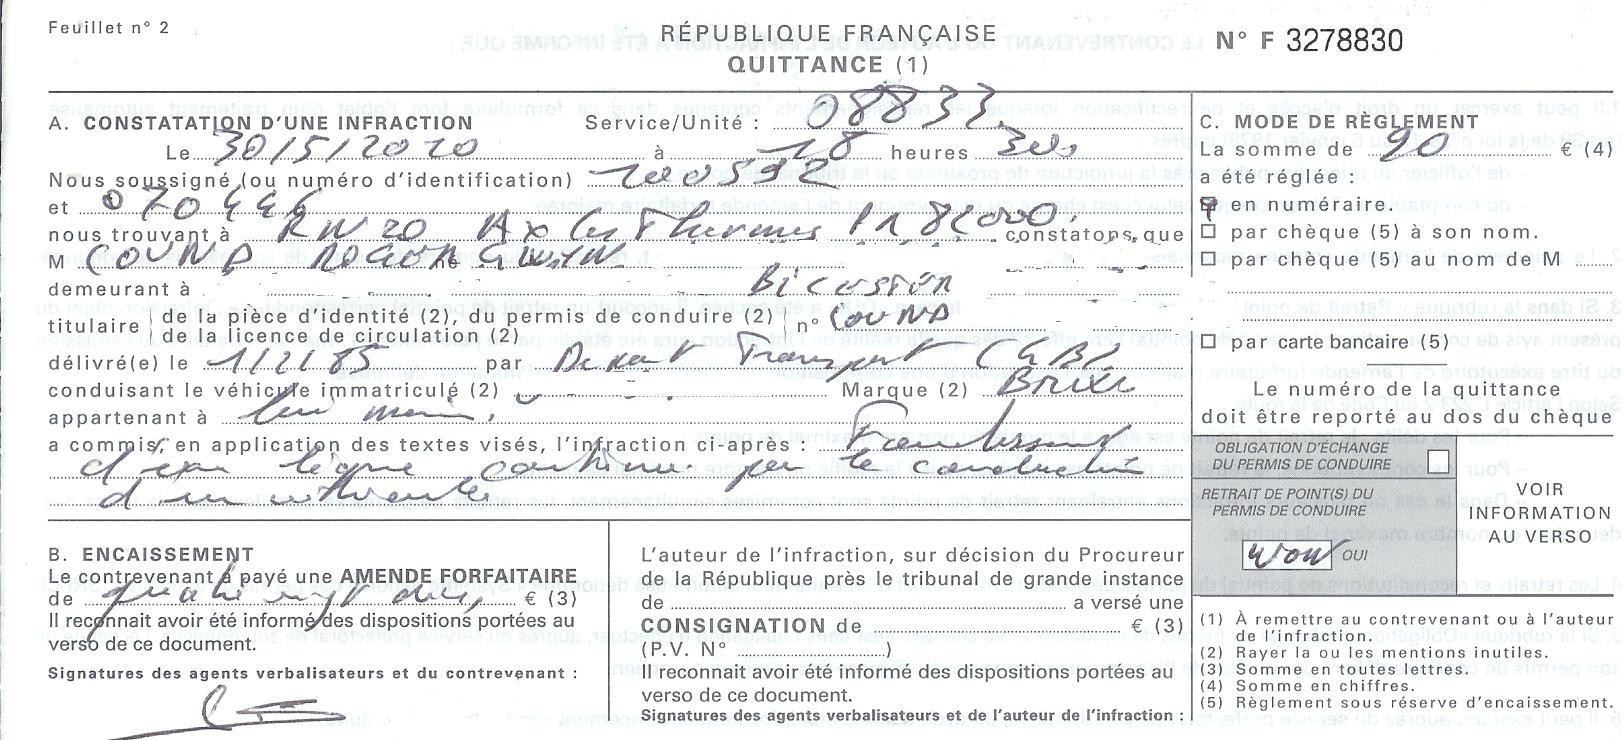 Feuillet n° 2
RÉPUBLIQUE FRANÇAISE
QUITTANCE (1)
N° F 3278830
A. CONSTATATION D'UNE INFRACTION Service/Unité : 08833
Le 30/5/2020 à 18 heures 300
Nous soussigné (ou numéro d'identification) 200532
et 070446
nous trouvant à RN 20 Ax les Thermes PR 82000. constatons, que
M COUND né
demeurant à
titulaire de la pièce d'identité (2), du permis de conduire (2) n° COUND
de la licence de circulation (2)
délivré(e) le 1/2/85 par Transport
conduisant le véhicule immatriculé (2) Marque (2)
appartenant à lui même.
a commis, en application des textes visés, l'infraction ci-après : Franchissement
d'une ligne continue par le conducteur
d'un
B. ENCAISSEMENT
Le contrevenant a payé une AMENDE FORFAITAIRE
de quatre vingt dix, € (3)
Il reconnait avoir été informé des dispositions portées au
verso de ce document.
Signatures des agents verbalisateurs et du contrevenant :
L'auteur de l'infraction, sur décision du Procureur
de la République près le tribunal de grande instance
de a versé une
CONSIGNATION de € (3)
(P.V. N° )
Il reconnait avoir été informé des dispositions portées au
verso de ce document.
Signatures des agents verbalisateurs et de l'auteur de l'infraction :
C. MODE DE RÈGLEMENT
La somme de 90 € (4)
a été réglée :
en numéraire.
par chèque (5) à son nom.
par chèque (5) au nom de M
par carte bancaire (5)
Le numéro de la quittance
doit être reporté au dos du chèque
OBLIGATION D'ÉCHANGE
DU PERMIS DE CONDUIRE
RETRAIT DE POINT(S) DU
PERMIS DE CONDUIRE
NON OUI
VOIR
INFORMATION
AU VERSO
(1) À remettre au contrevenant ou à l'auteur
de l'infraction.
(2) Rayer la ou les mentions inutiles.
(3) Somme en toutes lettres.
(4) Somme en chiffres.
(5) Règlement sous réserve d'encaissement.